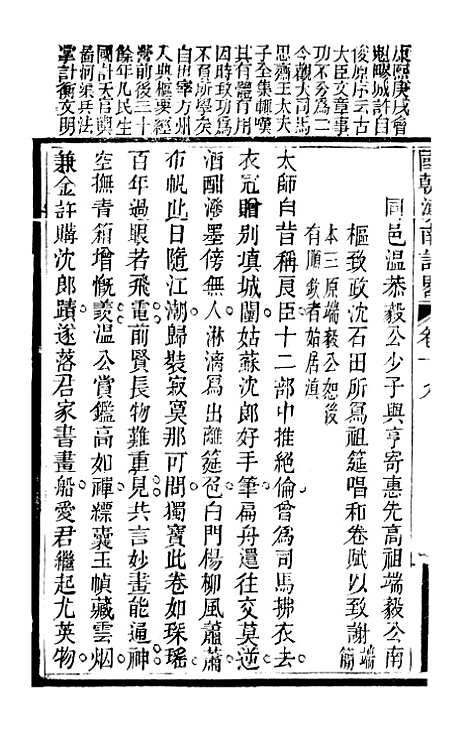 康熙庚戌會
魁疁城許自
俊原序云古
大臣文章事
功不分爲二
今觀大司馬
思齋王太夫
子全集輒嘆
其有體有用
因時政功爲
不負所學矣
自邑宰方州
入與樞要經
營前後三十
餘年凡民生
國計天官輿
啚河渠兵法
掌計衡文明
國朝滇南詩畧 卷
同邑溫恭毅公少子與亨寄惠先高祖端毅公南
樞致政沈石田所爲祖筵唱和卷賦以致謝 端簡
本三原端毅公恕後
有順者始居滇
太師自昔稱良臣十二部中推絕倫曾爲司馬拂衣去
衣冠贈別填城闉姑蘇沈郎好手筆扁舟還往交莫逆
酒酣潑墨傍無人淋漓爲出離筵色白門楊柳風蕭蕭
布帆此日隨江潮歸裝寂寞那可問獨寶此卷如琛瑤
百年過眼若飛電前賢長物難重見共言妙畫能逼神
空撫青箱增慨羨溫公賞鑑高如禪縹囊玉幀藏雲烟
兼金許購沈郎蹟遂落君家書畫船愛君繼起尤英物